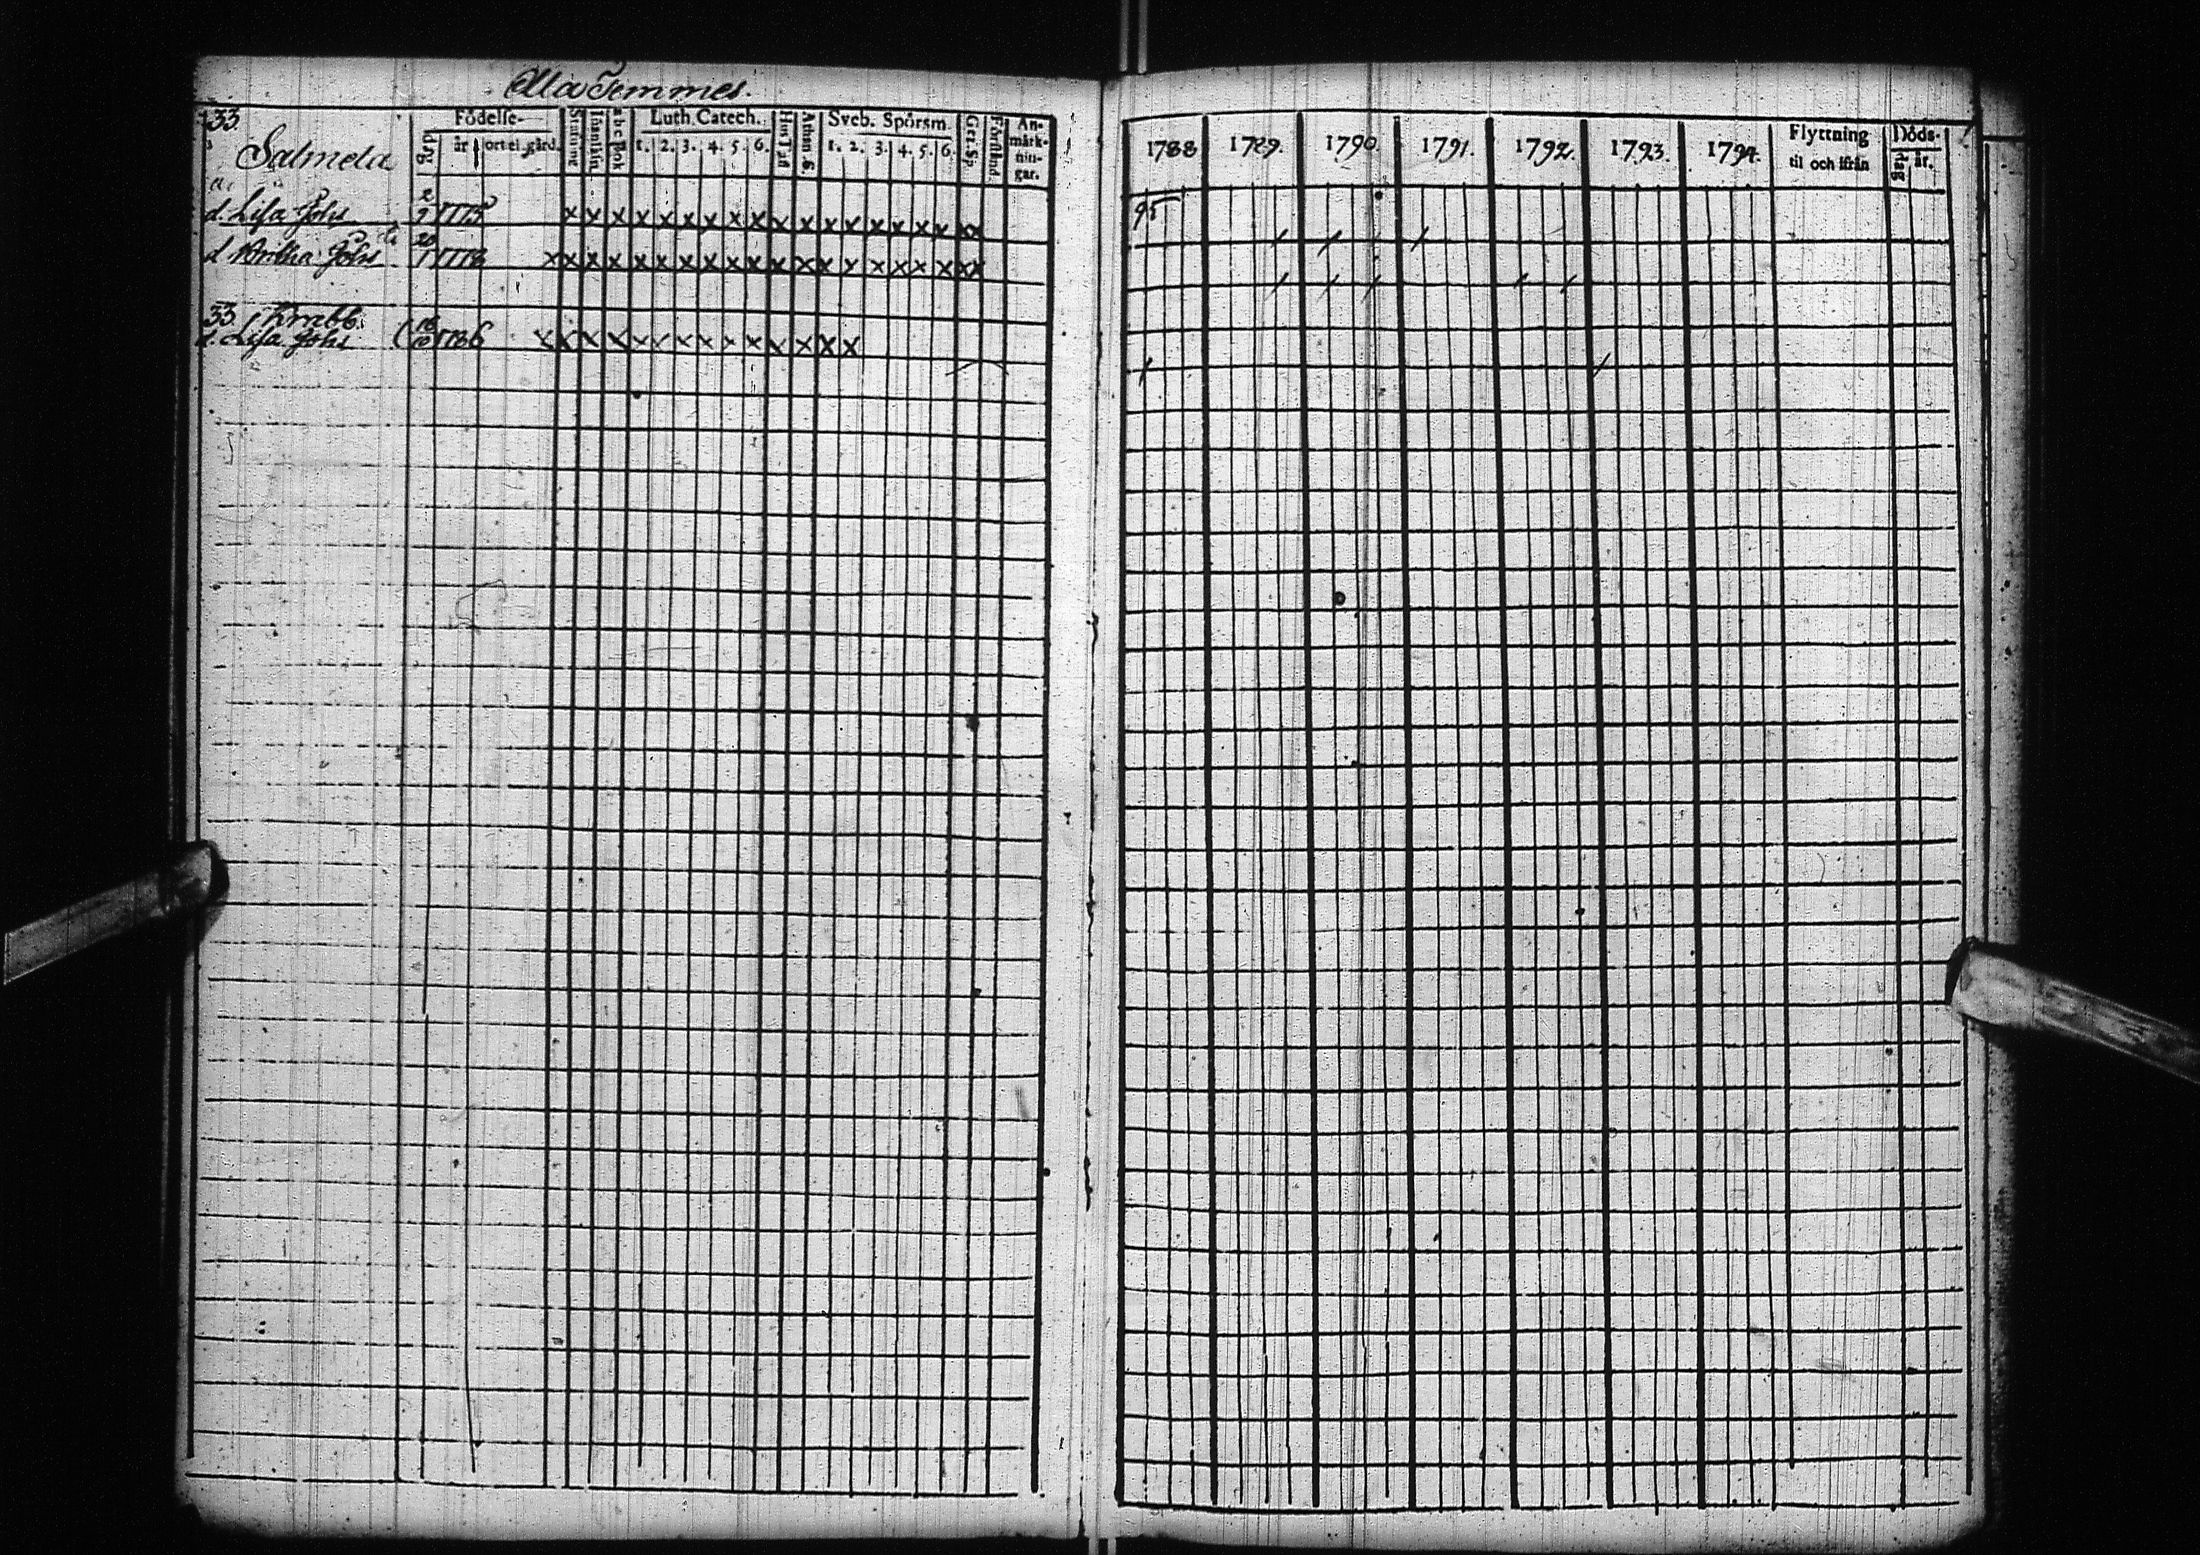 Ala Temmes.
33.
Salmela
Födelse-
dag
år
ort el. gård.
Luth. Catech.
1. 2. 3. 4. 5. 6.
Hus Tafl
Athan. S.
Sveb. Spörsm.
1. 2. 3. 4. 5. 6.
Förstånd
An-
märk-
nin-
gar.
a.
d. Lisa Johs 2/9 1775
x x x x x x x x x x x x x x x x x x
d. Britha Johs
x x x x x x x x x x x x x x x x x x x
33. Krabb.
d. Lisa Johs 16/10 1786
x x x x x x x x x x x x x x
1788 1789. 1790. 1791. 1792. 1793. 1794.
Flyttning
til och ifrån
Döds-
dag
år.
95